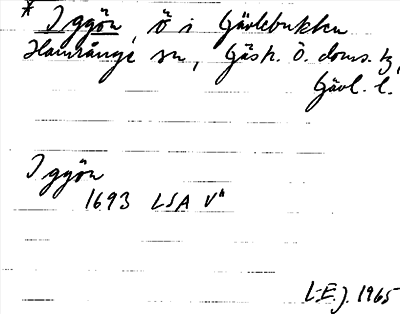 * Iggön, ö i Gävlebukten
Hamrånge sn, Gästr. ö. doms. tg,
Gävl. l.
Iggön
1693 LSA V"
L-E.J. 1965